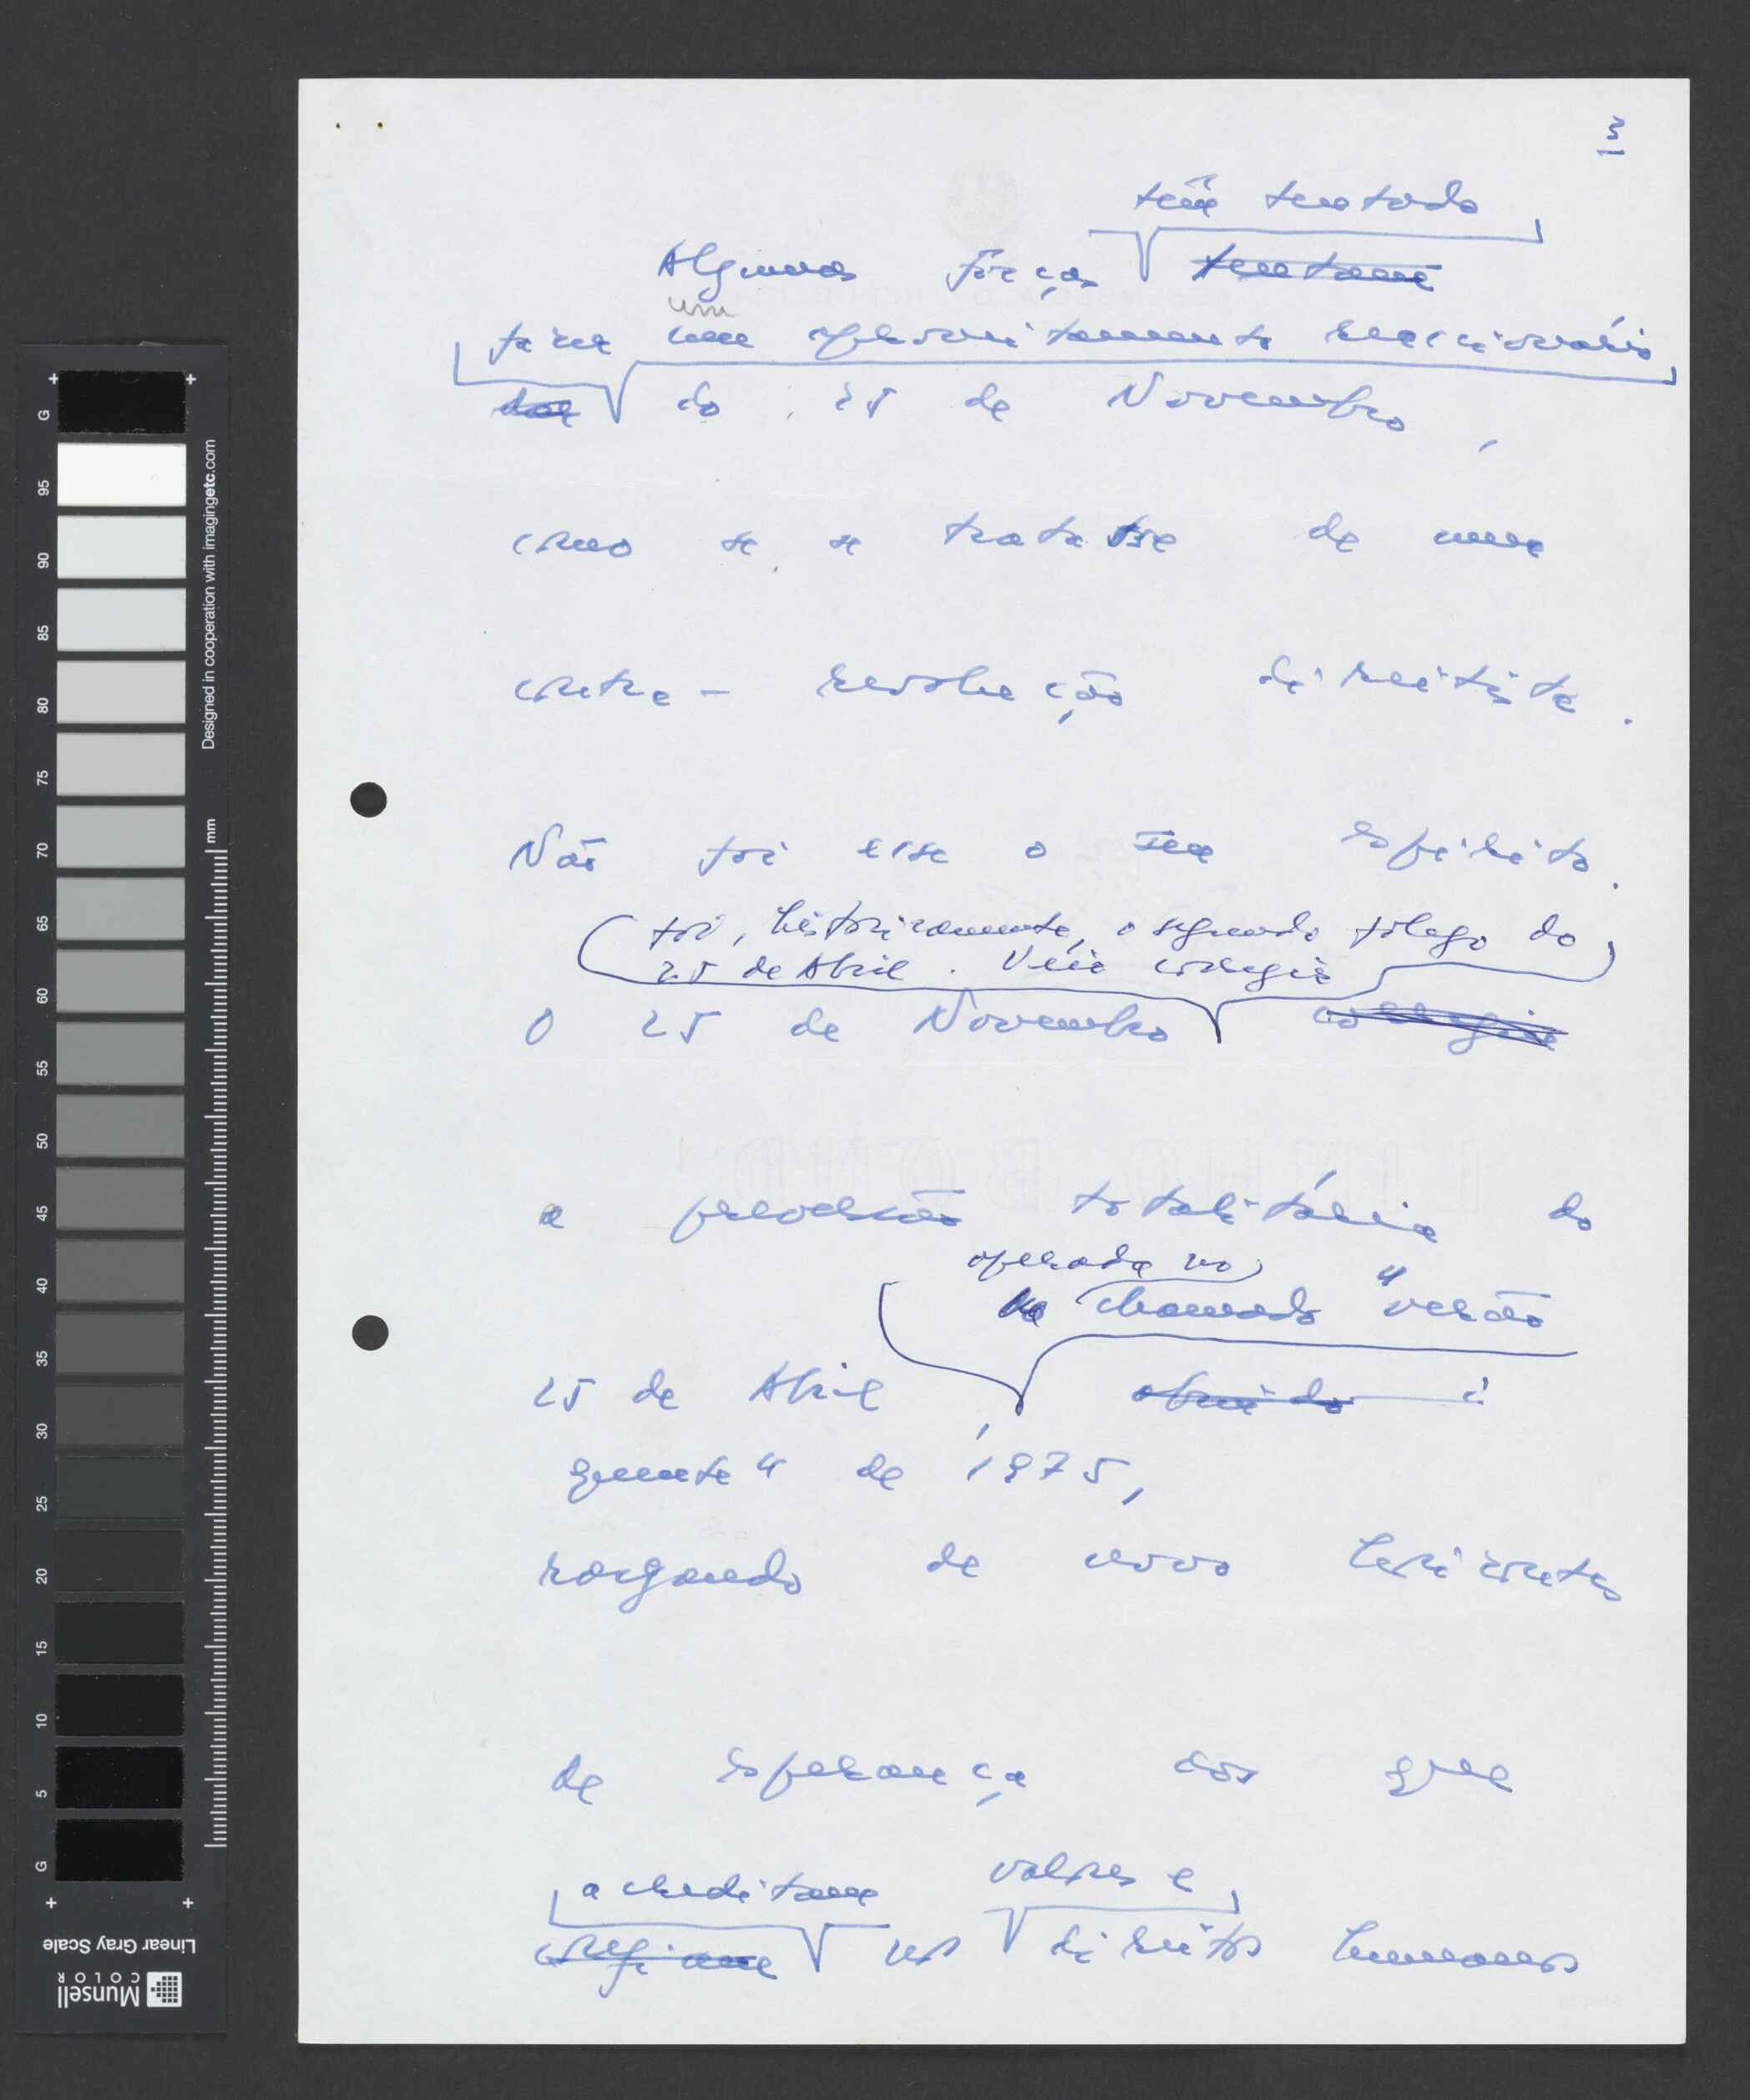 3
têm tentado
Algumas forças tentam
um
fazer um aproveitamento reaccionário
dar do 25 de Novembro,
como se se tratasse de uma
contra-revolução direitista.
Não foi esse o seu espírito.
foi, históricamente, o segundo fôlego do
25 de Abril. Veio corrigir
O 25 de Novembro corrigiu
a perversão totalitária do
operada no
chamado "verão
25 de Abril, abrindo
quente" de 1975,
rasgando de novo horizontes
de esperança aos que
acreditam valores e
confiam nos direitos humanos
Designed in cooperation with imagingetc.com
mm
G 95 90 85 80 75 70 65 60 55 50 45 40 35 30 25 20 15 10 5 G
Linear Gray Scale
Munsell
COLOR